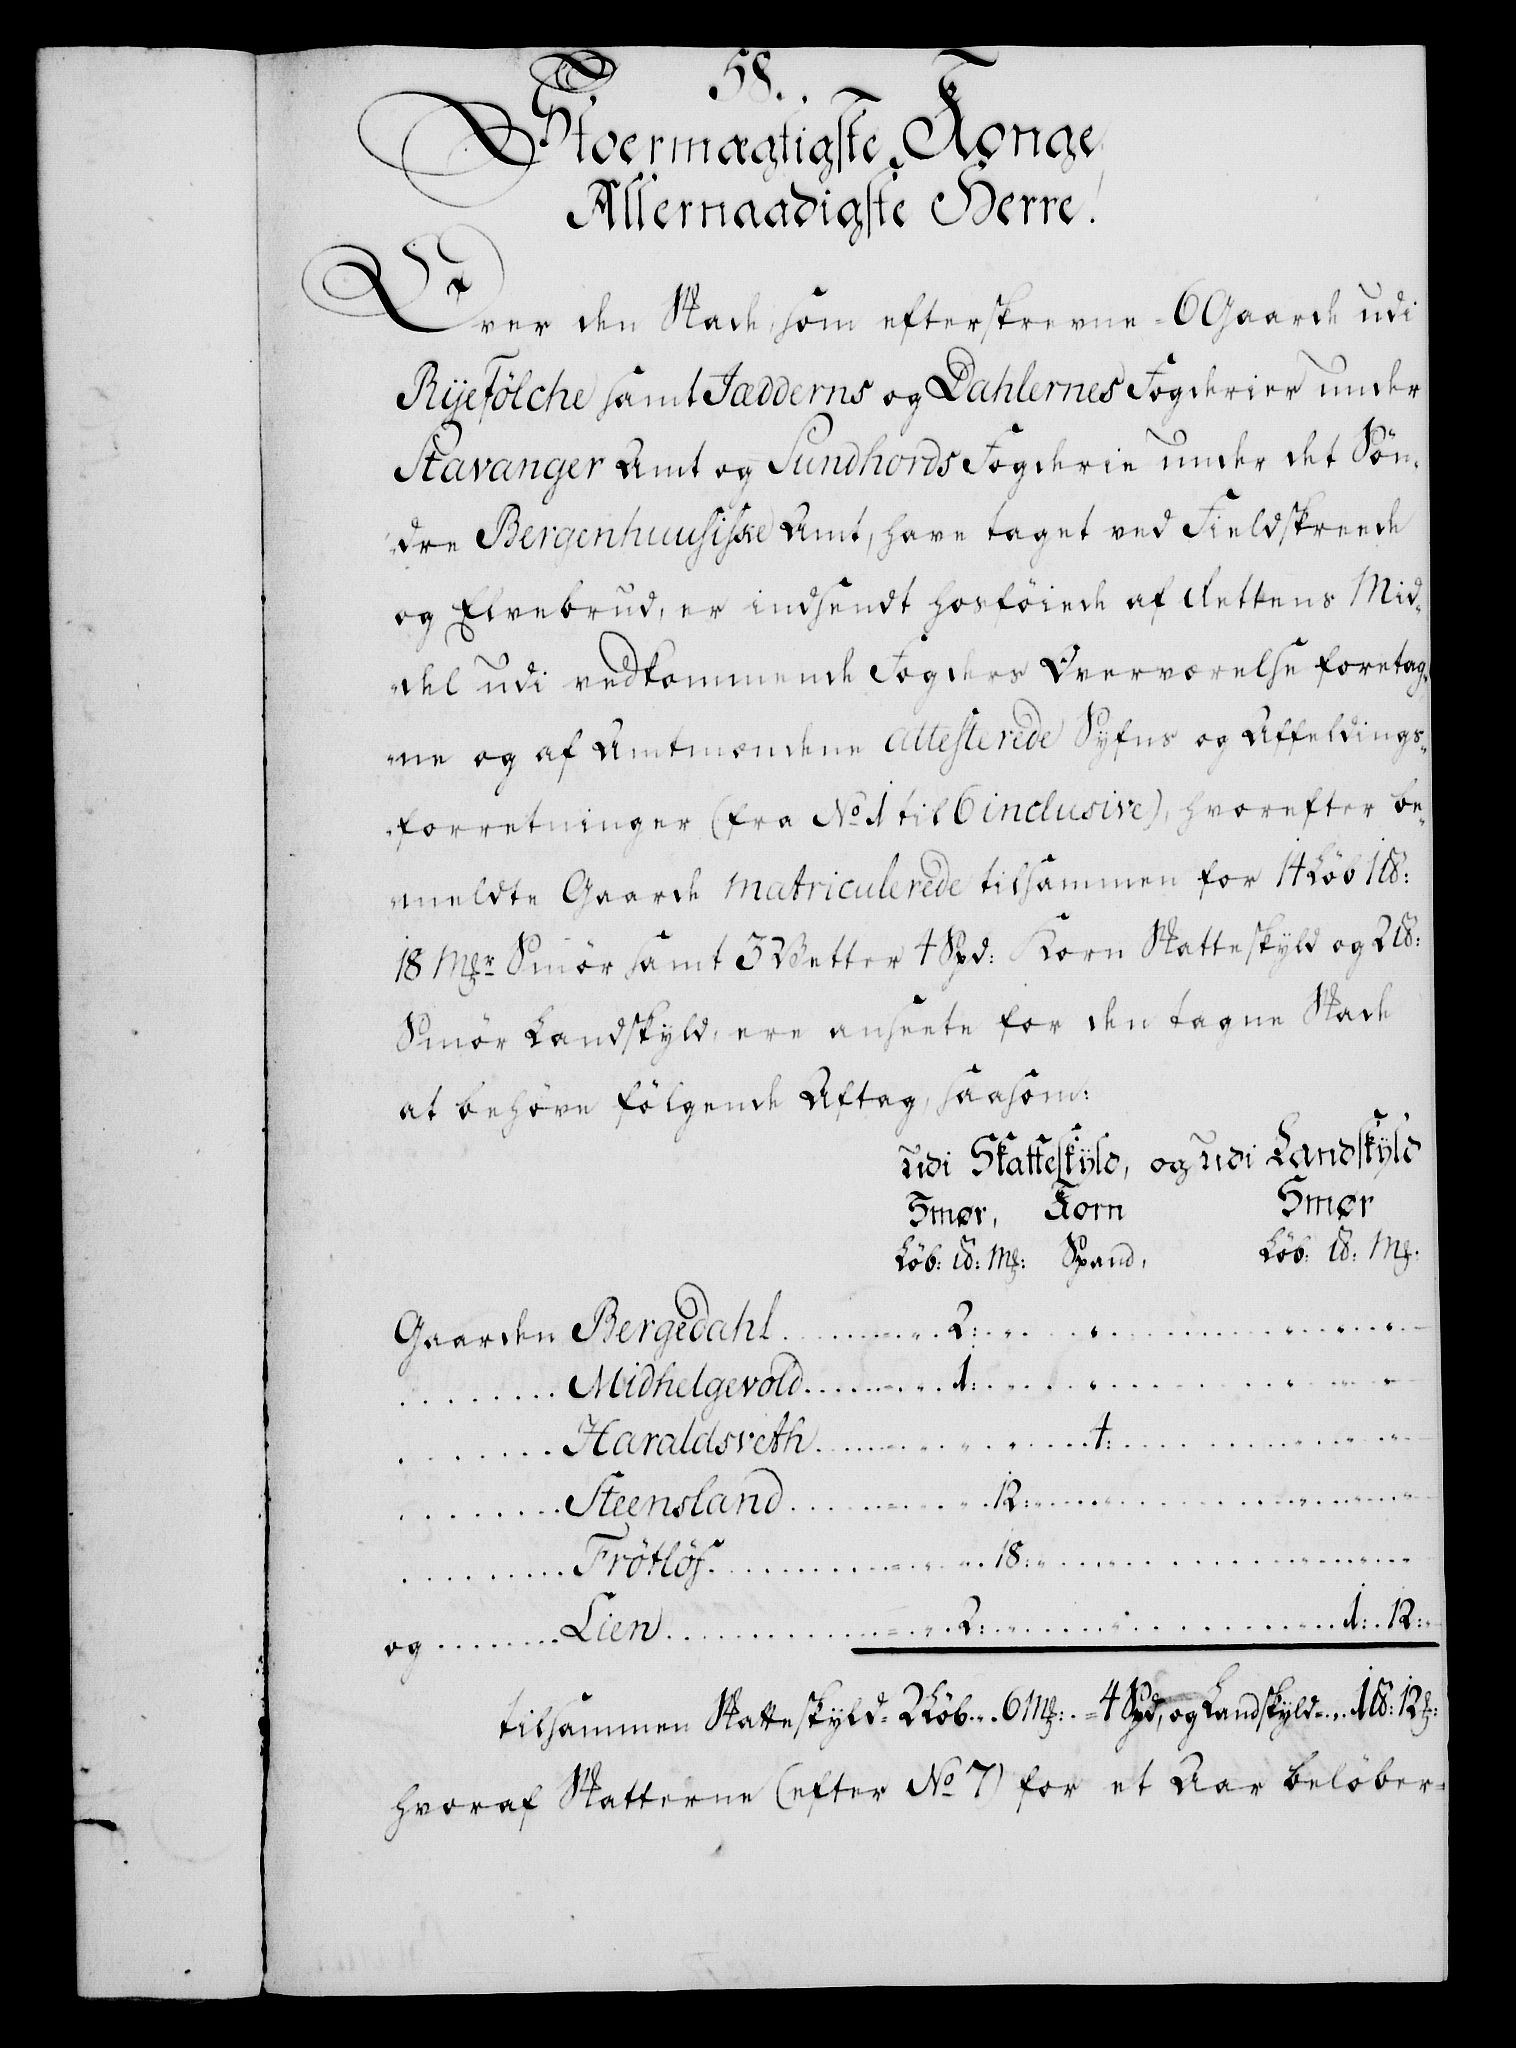 58.
Stoermægtigste Konge
Allernaadigste Herre!
Over den Skade, som efterskrevne 6 Gaarde udi
Rÿefölche samt Jædderns og Dahlernes Fogderier under
Stavanger Amt og Sundhords Fogderie under det Søn-
dre Bergenhuusiske Amt, have taget ved Fieldskreede
og Elvebrud, er indsendt hosføiede af Rettens Mid-
del udi vedkommende Fogders Overværelse foretag-
ne og af Amtmændene attesterede Syns og Affældings-
forretninger (fra No 1 til 6 inclusive), hvorefter be-
meldte Gaarde matriculerede tilsammen for 14 Løb 1 ℔:
18 Mkr Smør samt 3 Vetter 4 Spd: Korn Skatteskyld og 2 ℔:
Smør Landskyld, ere ansete for den tagne Skade
at behøve følgende Aftag, saasom:
udi Skatteskÿld, og udi Landskÿld
Smør, Korn Smør
Løb: ℔: Mk: Spand, Løb: ℔: Mk.
Gaarden Bergedahl 2:
Midhelgevold 1:
Haraldsveth 4:
Steensland 12:
Frötlös 18:
og Lien 2: 1: 12:
tilsammen Skatteskyld 2 Løb 6 Mk: 4 Spd, og Landskyld 1 ℔: 12 k:
hvoraf Skatterne (efter No 7) for et Aar beløber